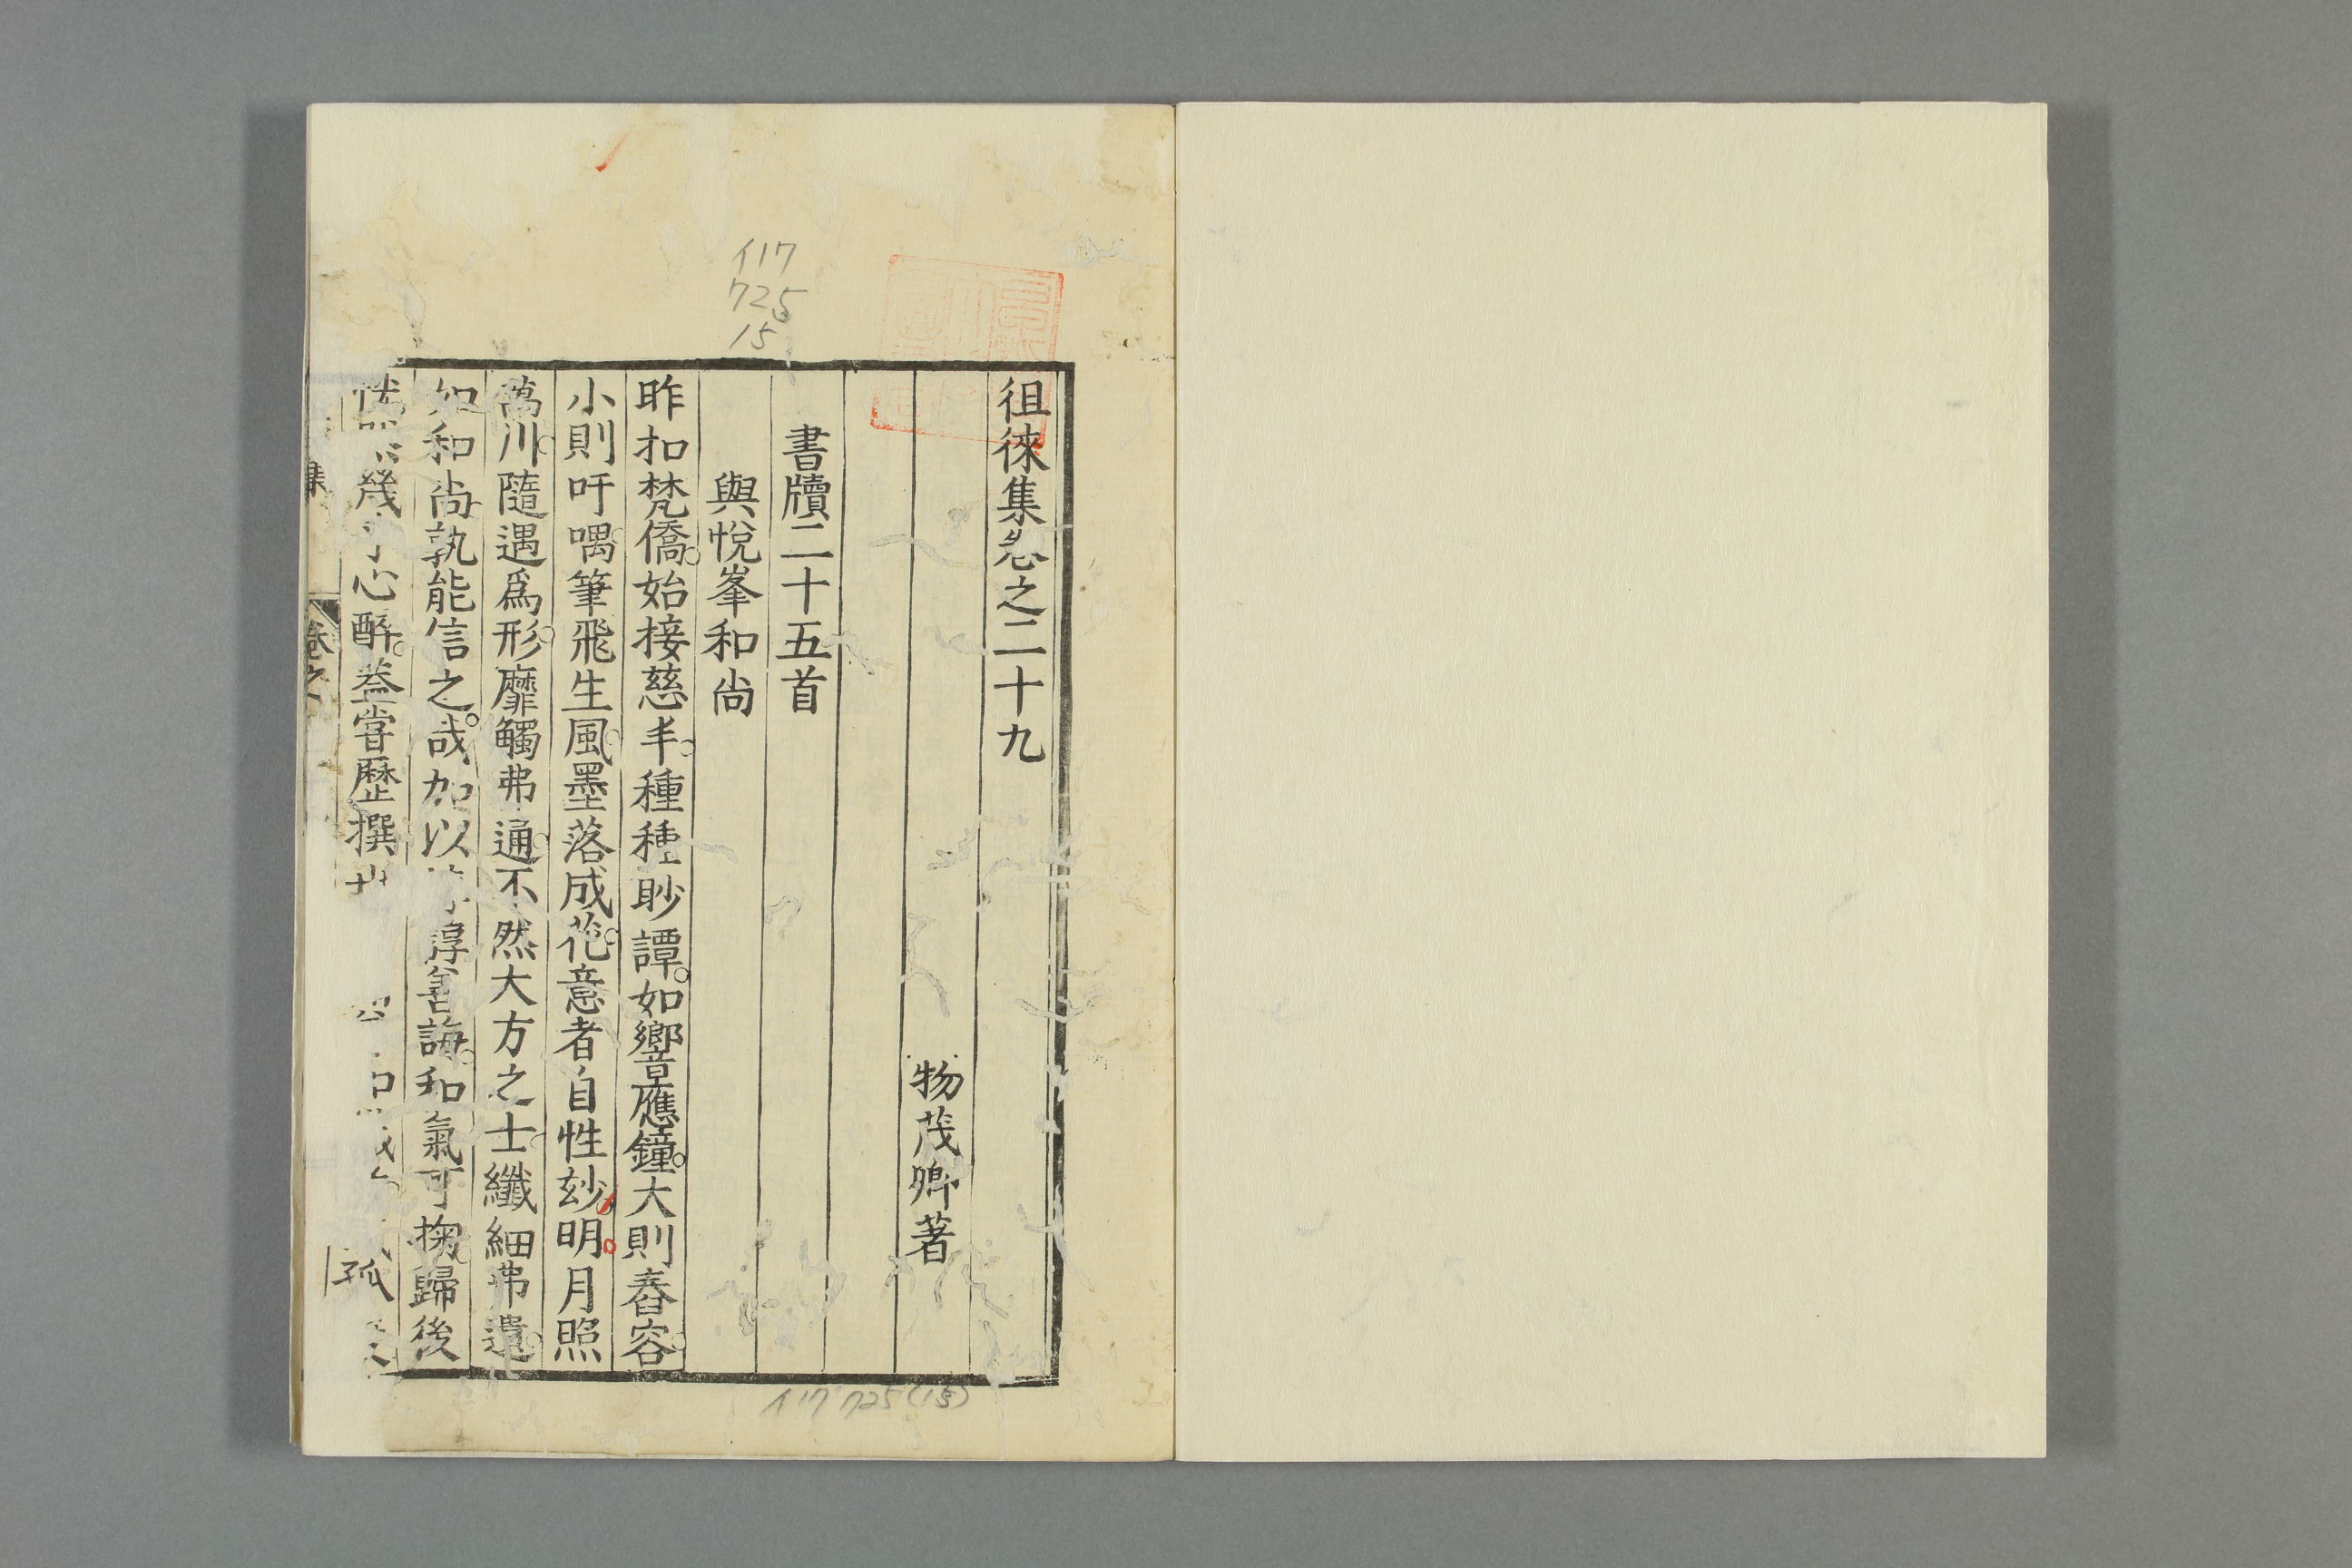 イ17
725
15
徂徠集卷之二十九
物茂卿著
書牘二十五首
與悅峯和尚
昨扣梵僑始接慈丰種種眇譚如響應鐘大則舂容
小則吁喁筆飛生風墨落成花意者自性玅明月照
萬川隨遇爲形靡觸弗通不然大方之士纖細弗遺
如和尚孰能信之哉加以諄善誨和氣可掬歸後
幾心醉葢嘗歷撰
孤
集
卷之
イ17 725(15)